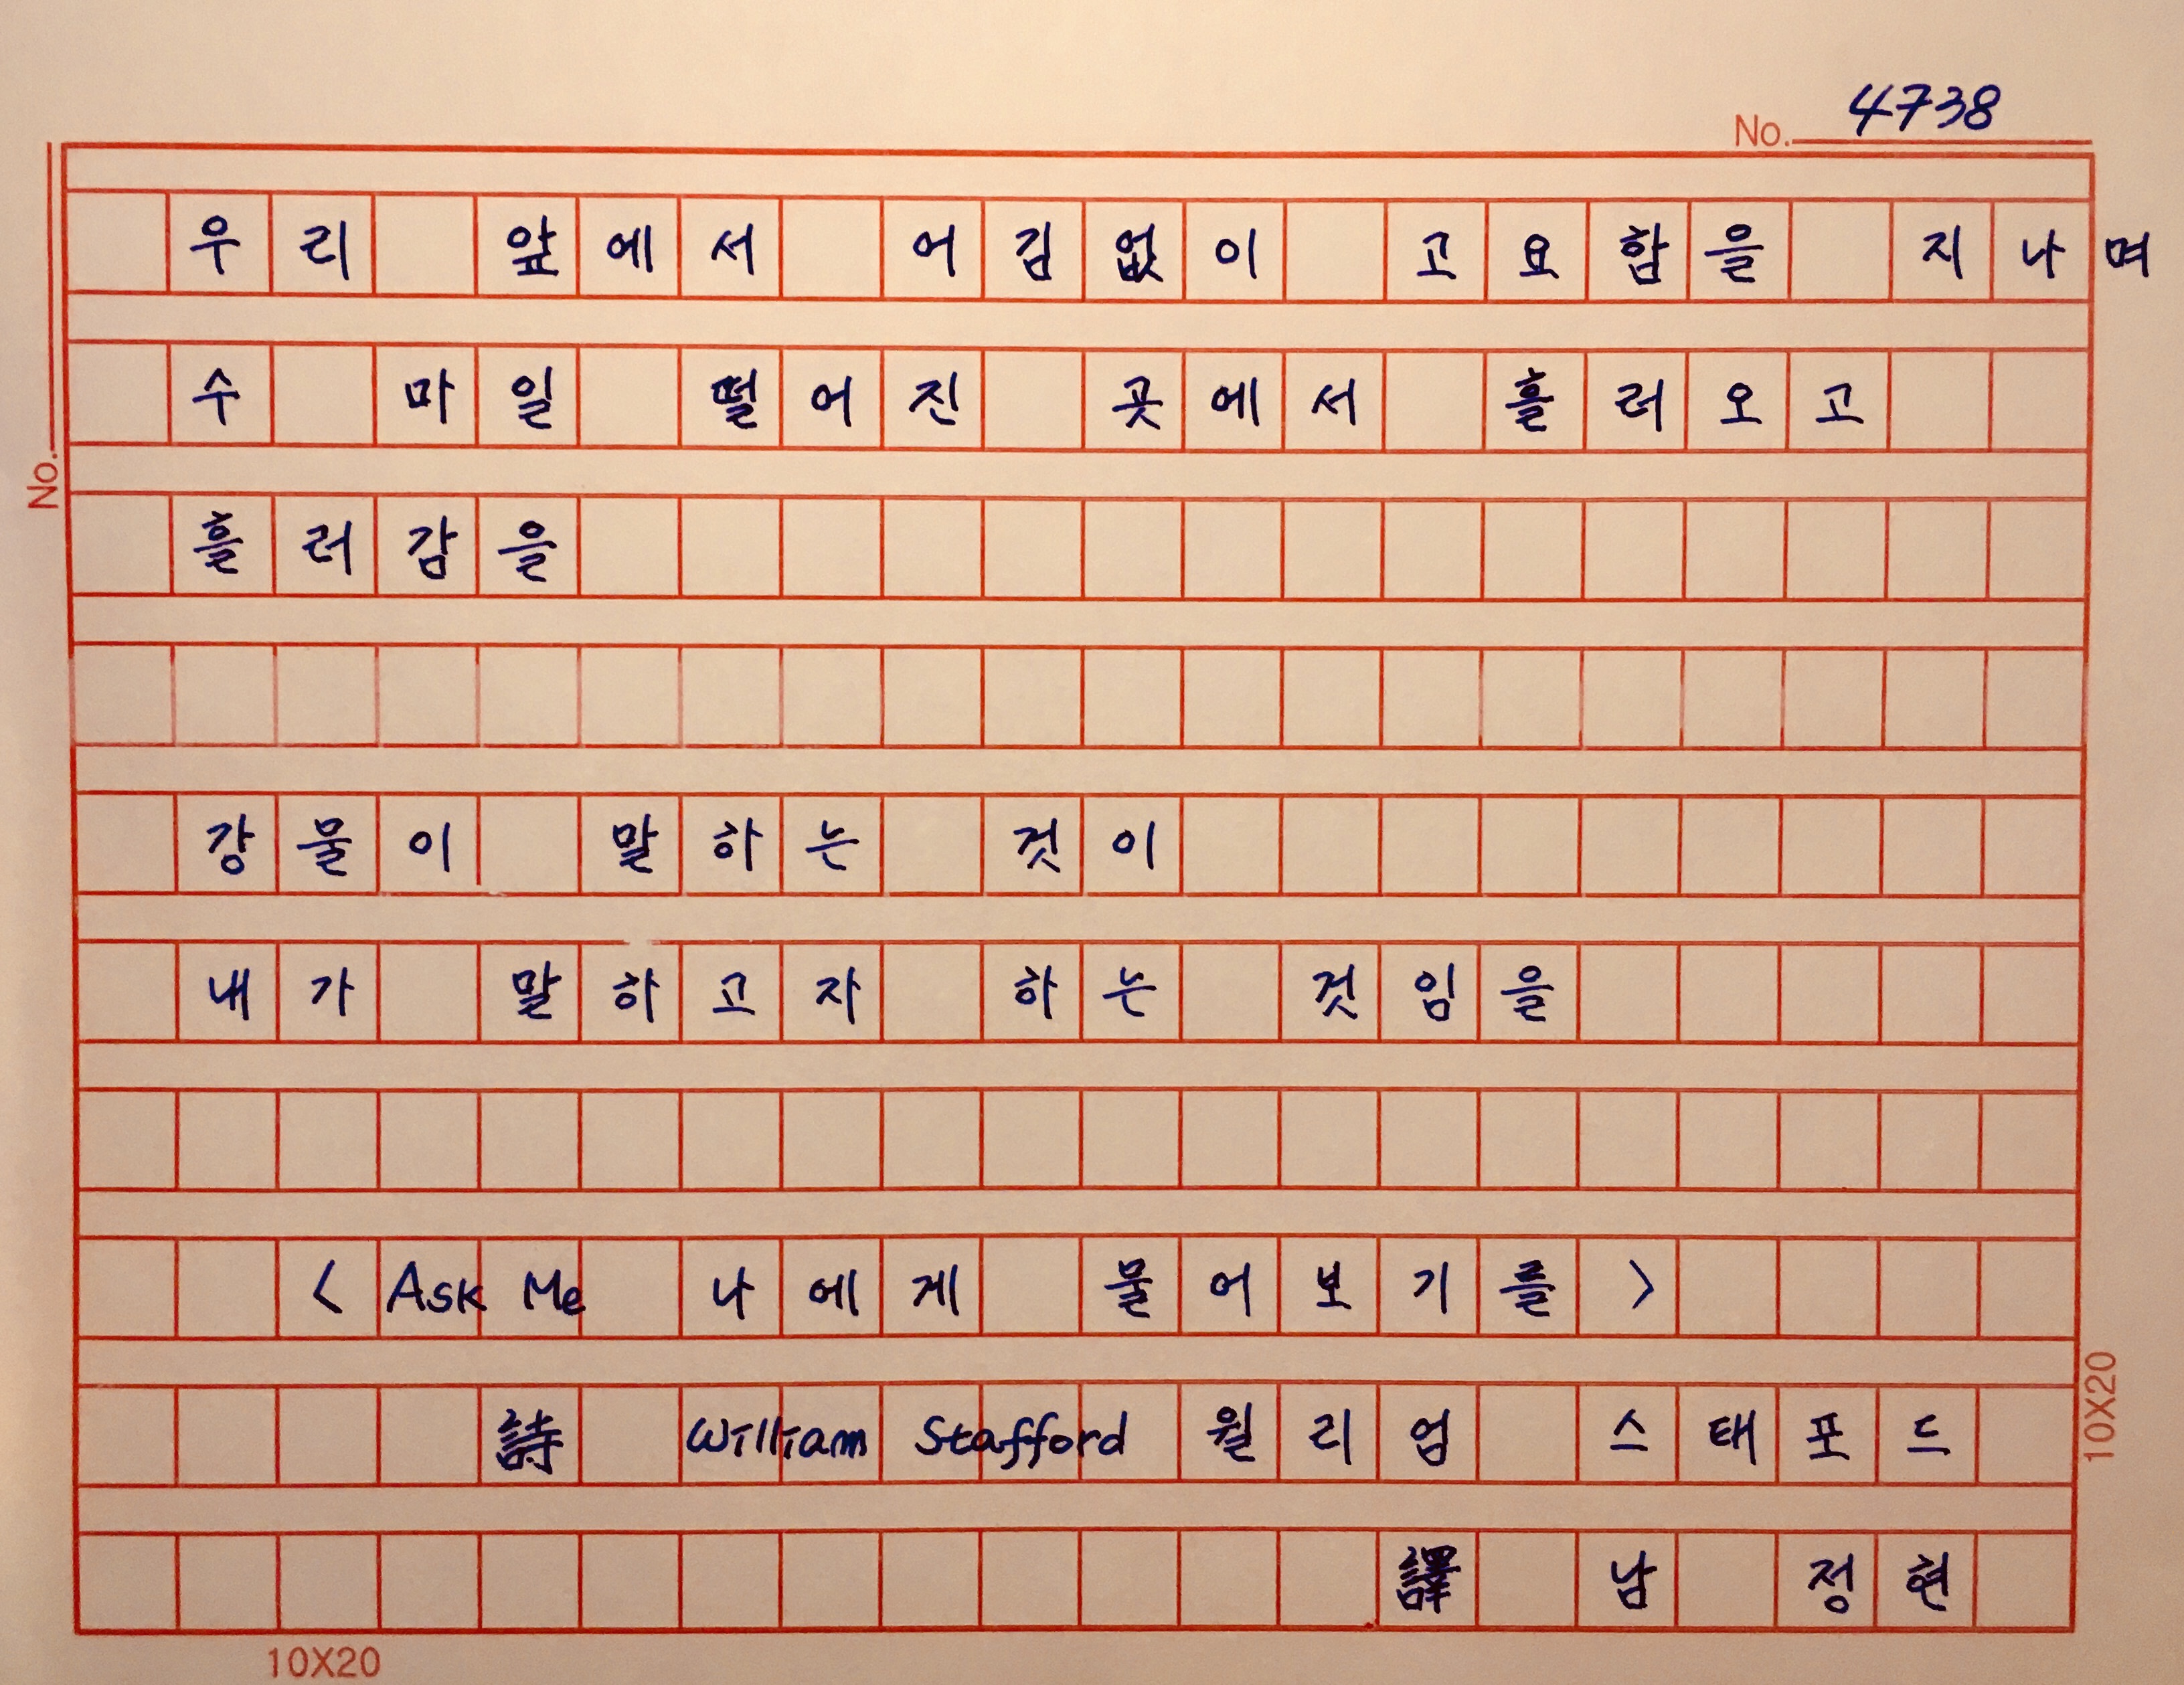 No. 4738
우리 앞에서 어김없이 고요함을 지나며
수 마일 떨어진 곳에서 흘러오고
흘러감을
No.
강물이 말하는 것이
내가 말하고자 하는 것임을
< Ask Me 나에게 물어보기를 >
詩 William Stafford 윌리엄 스태포드
譯 남 정현
10X20
10X20